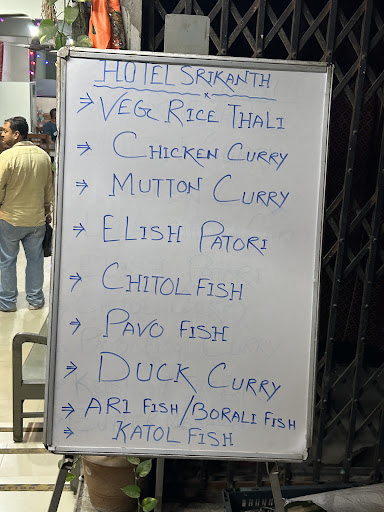 HOTEL SRIKANTH
⇒ VEG RICE THALI
⇒ CHICKEN CURRY
⇒ MUTTON CURRY
⇒ ELISH PATORI
⇒ CHITOL FISH
⇒ PAVO FISH
⇒ DUCK CURRY
⇒ ARI FISH/BORALI FISH
⇒ KATOL FISH